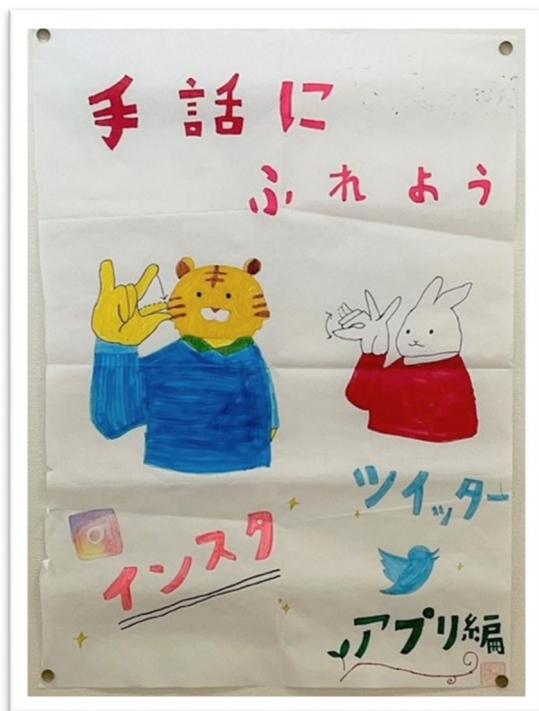 手話に
ふれよう
インスタ
ツイッター
アプリ編